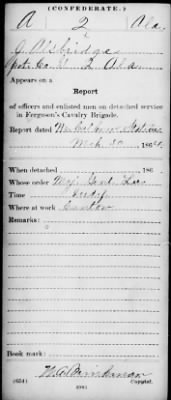 (CONFEDERATE.)
A 2 Ala.
J Aisbridge
Co. 2 Ala.
Appears on a
Report
of officers and enlisted men on detached service
in Ferguson's Cavalry Brigade.
Report dated Station
Mch 30, 1864.
When detached , 186 .
Whose order Maj. Genl. Lee
Time Indf.
Where at work Canton
Remarks:
Book mark:
(654)
Copyist.